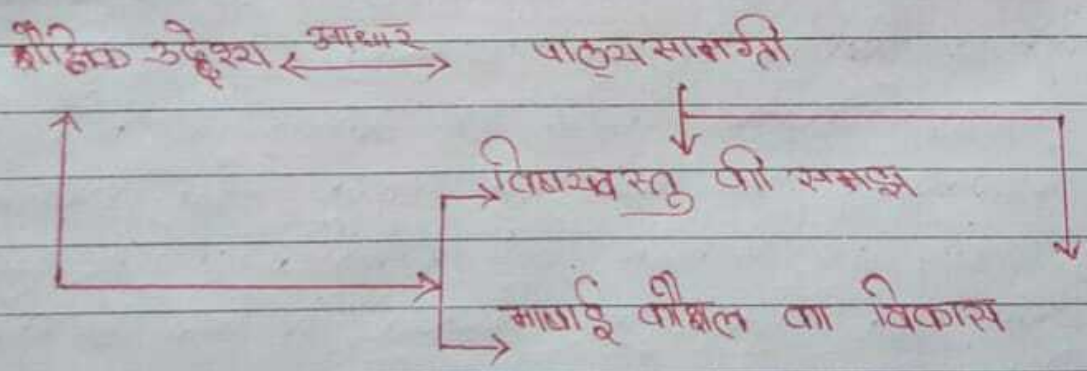 शैक्षिक उद्देश्य आधार पाठ्यसामग्री
विषयवस्तु की समझ
भाषाई कौशल का विकास